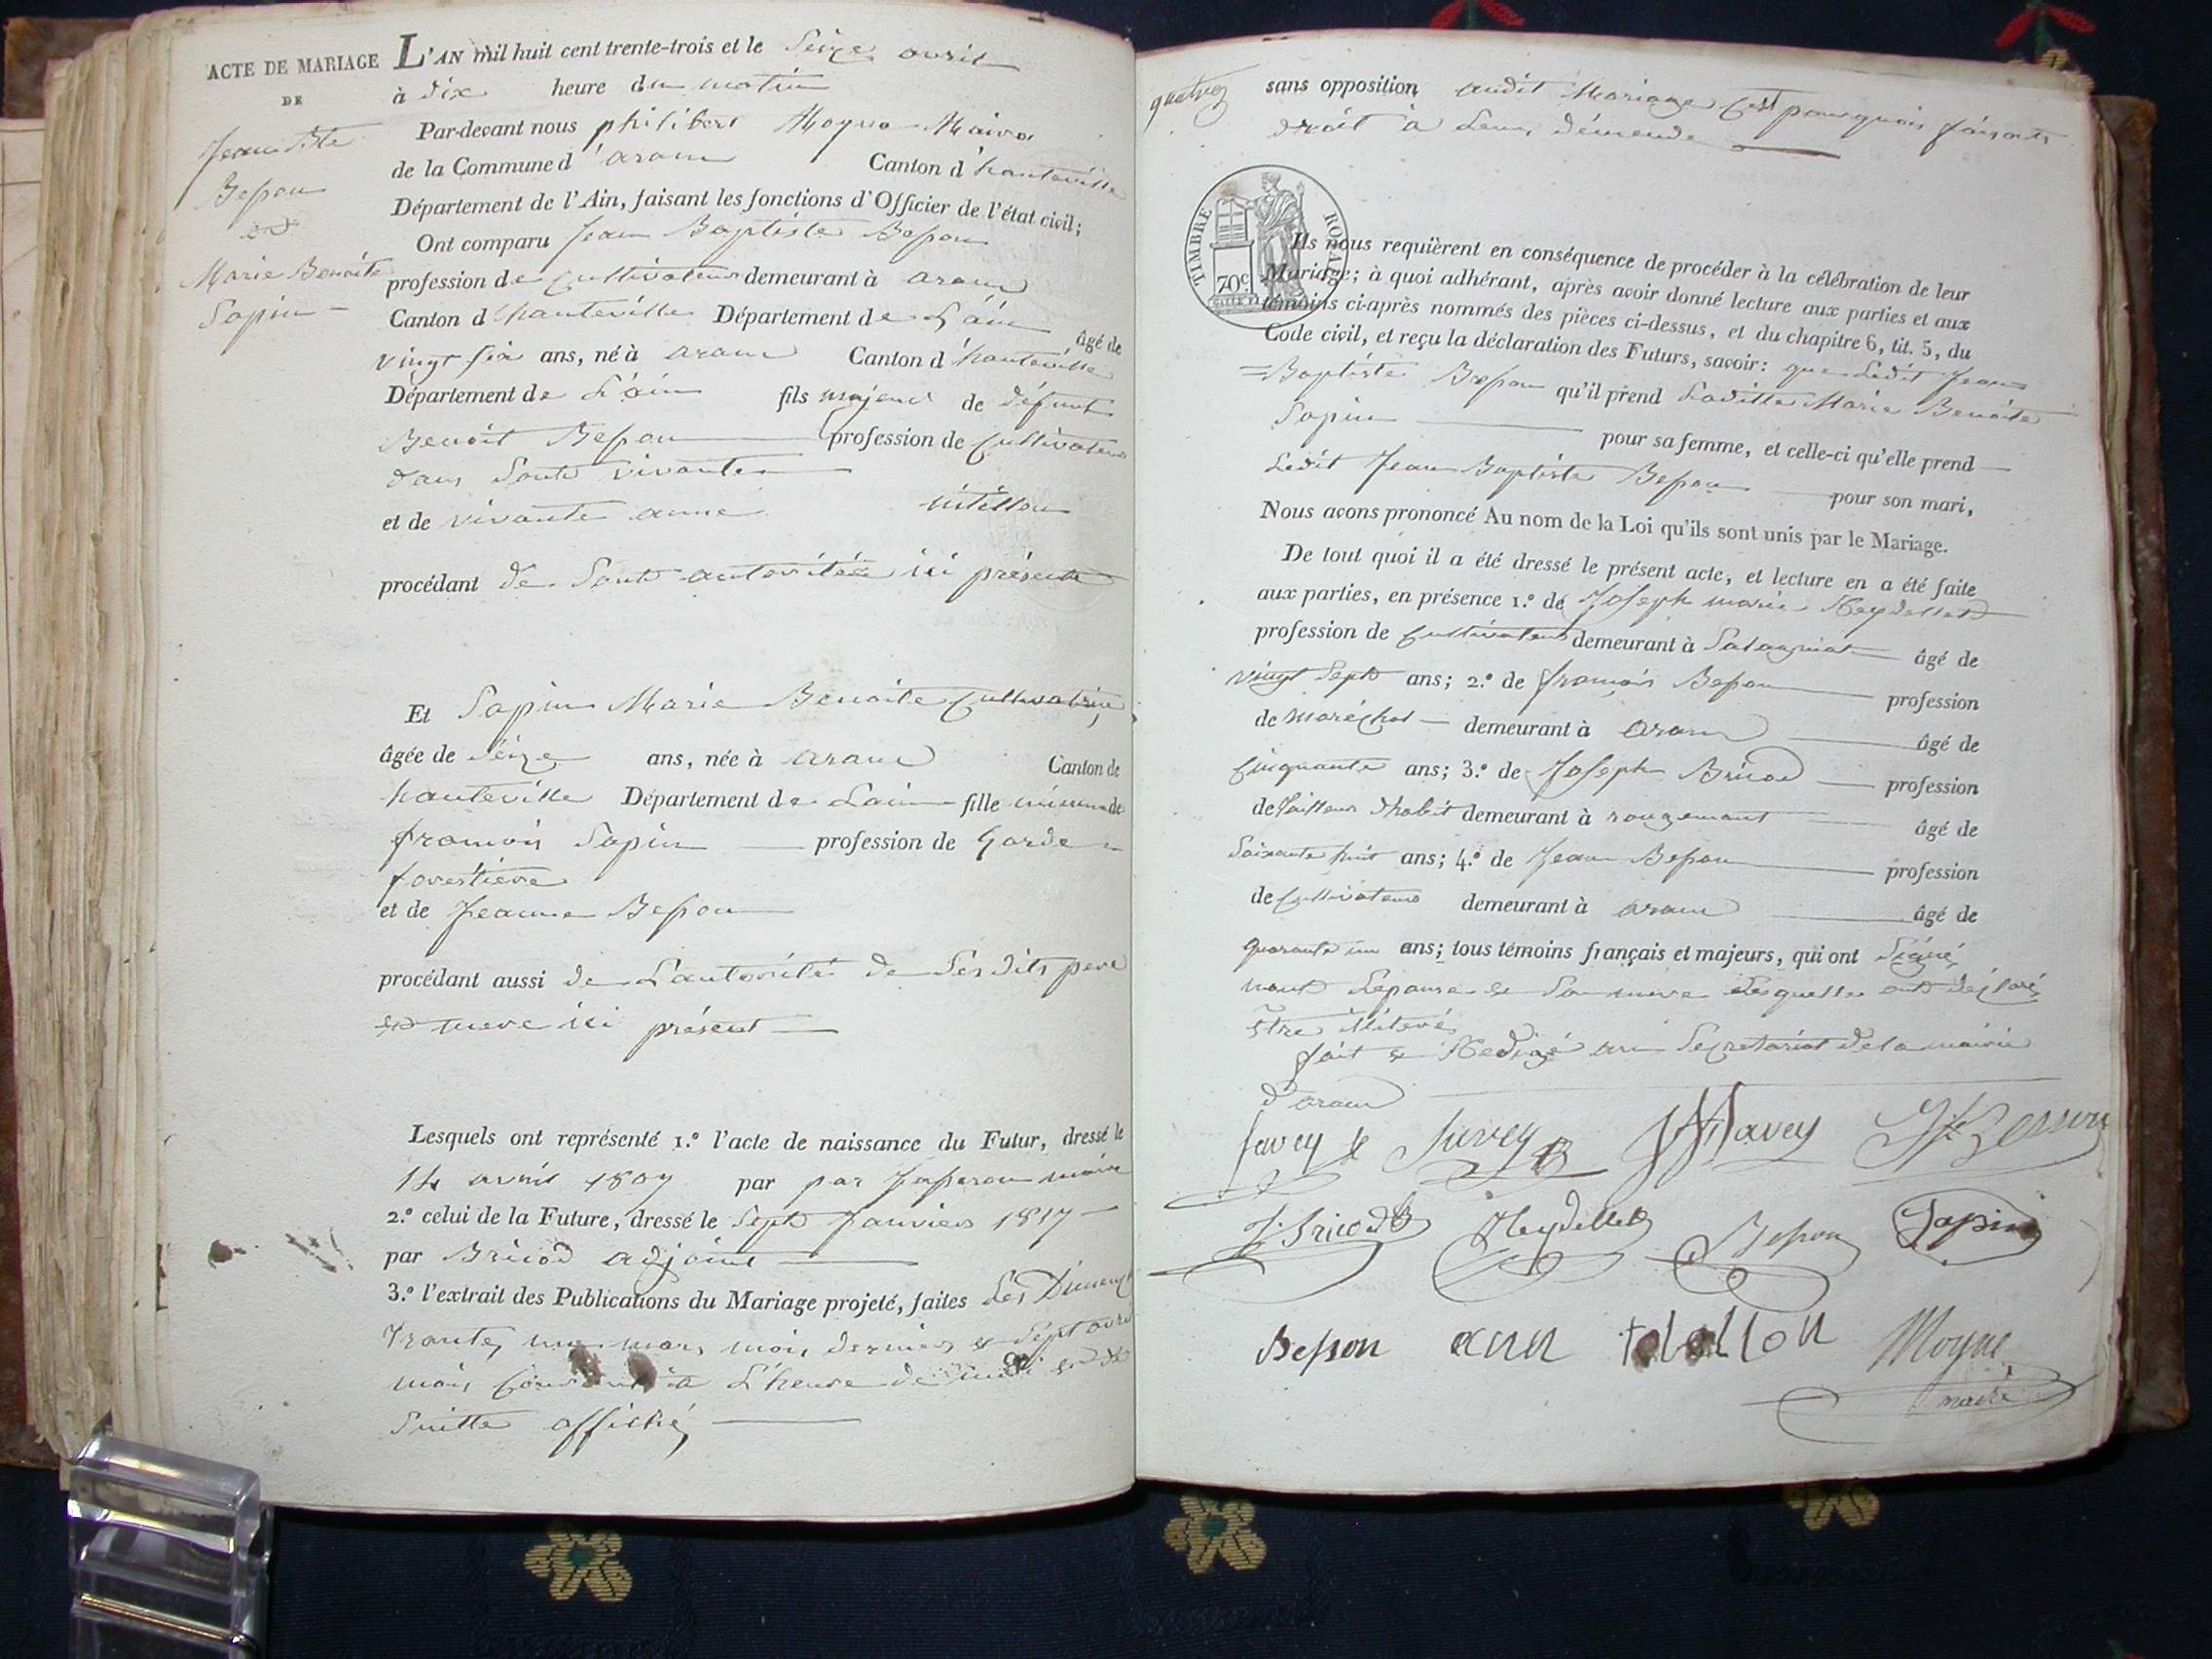 ACTE DE MARIAGE
DE
Jean Bte
Besson
et
Marie Benoite
Sapin
L'AN mil huit cent trente-trois et le Seize avril
à dix heure du matin
Par-devant nous philibert Moyne Maire
de la Commune d'aranc Canton d'hauteville
Département de l'Ain, faisant les fonctions d'Officier de l'état civil;
Ont comparu Jean Baptiste Besson
profession de Cultivateur demeurant à aranc
Canton d'hauteville Département de L'ain âgé de
vingt six ans, né à aranc Canton d'hauteville
Département de L'ain fils majeur de défunt
Benoit Besson profession de Cultivateur
dans Sont vivant
et de vivante anne
procédant de Sont autorité ici présente
Et Sapin Marie Benoite Cultivatrice
âgée de Seize ans, née à aranc Canton de
hauteville Département de Lain fille mineure de
francois Sapin profession de Garde
forestiere
et de Jeanne Besson
procédant aussi de L'autorité de Ses dits pere
et mere ici présent
Lesquels ont représenté 1.º l'acte de naissance du Futur, dressé le
14 avril 1807 par par maire
2.º celui de la Future, dressé le Sept Janvier 1817
par Bricod adjoint
3.º l'extrait des Publications du Mariage projeté, faites Les
trante, un mars mois dernier & Sept avril
mois Courant à L'heure de midi et de
Suitte affiché
quatre
sans opposition audit Mariage C'est pourquoi faisant
droit à Leur démende
TIMBRE ROYAL
70c
Ils nous requièrent en conséquence de procéder à la célébration de leur
Mariage; à quoi adhérant, après avoir donné lecture aux parties et aux
témoins ci-après nommés des pièces ci-dessus, et du chapitre 6, tit. 5, du
Code civil, et reçu la déclaration des Futurs, savoir: que Ledit Jean
=Baptiste Besson qu'il prend Laditte Marie Benoite
Sapin pour sa femme, et celle-ci qu'elle prend
Ledit Jean Baptiste Besson pour son mari,
Nous avons prononcé Au nom de la Loi qu'ils sont unis par le Mariage.
De tout quoi il a été dressé le présent acte, et lecture en a été faite
aux parties, en présence 1.º de Joseph marie Reydellet
profession de Cultivateur demeurant à âgé de
vingt Sept ans; 2.º de francois Besson profession
de Maréchal demeurant à aranc âgé de
Cinquante ans; 3.º de Joseph Bricod profession
de tailleur d'habit demeurant à rougemont âgé de
Soixante huit ans; 4.º de Jean Besson profession
de Cultivateur demeurant à aranc âgé de
quarante un ans; tous témoins français et majeurs, qui ont Signé
non L'épouse & Sa mere Lesquelles ont déclaré
être illiteré
fait & Redigé au Secretariat de la mairie
d'aranc
Savey Savey Savey Jte Besson
J. Bricod Reydellet Besson Sapin
Besson ann Moyne
maire